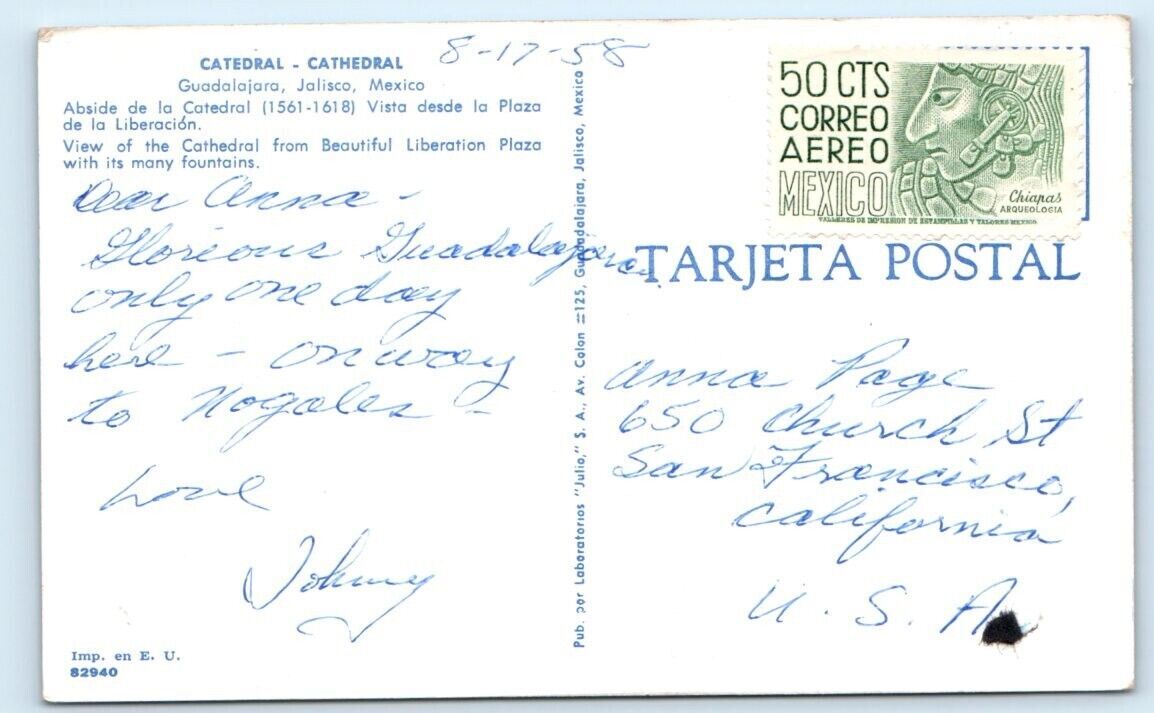 8-17-58
CATEDRAL - CATHEDRAL
Guadalajara, Jalisco, Mexico
Abside de la Catedral (1561-1618) Vista desde la Plaza
de la Liberación.
View of the Cathedral from Beautiful Liberation Plaza
with its many fountains.
Dear Anna -
Glorious Guadalajara
only one day
here - on way
to Nogales -
Love
Johnny
Imp. en E. U.
82940
Pub. por Laboratorios "Julio," S. A., Av. Colon #125, Guadalajara, Jalisco, Mexico
50 CTS
CORREO
AEREO
MEXICO
Chiapas
ARQUEOLOGIA
TALLERES DE IMPRESION DE ESTAMPILLAS Y VALORES-MEXICO
TARJETA POSTAL
Anna Page
650 Church St
San Francisco,
California
U. S. A.